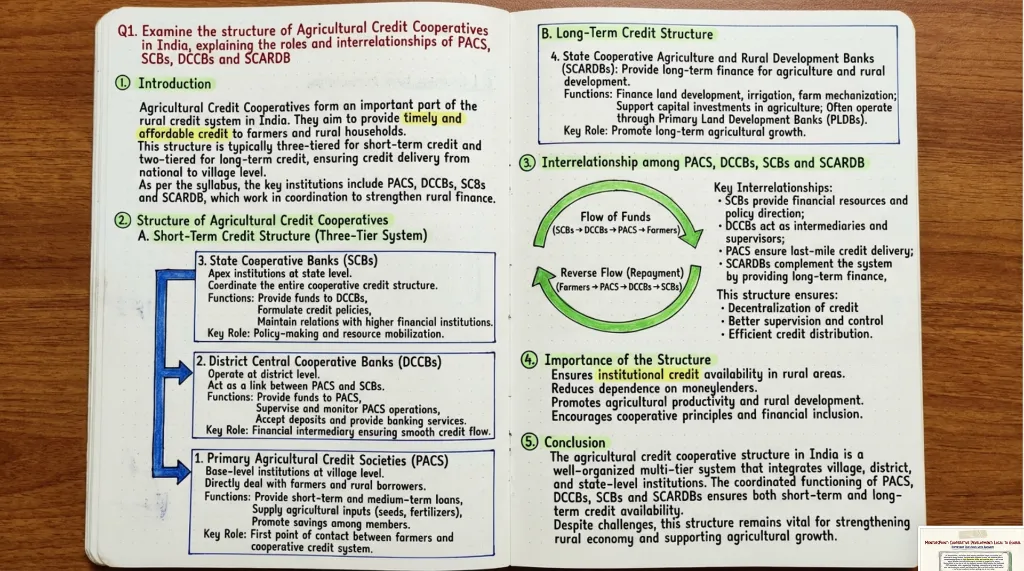 Q1. Examine the structure of Agricultural Credit Cooperatives
in India, explaining the roles and interrelationships of PACS,
SCBs, DCCBs and SCARDB
1. Introduction
Agricultural Credit Cooperatives form an important part of the
rural credit system in India. They aim to provide timely and
affordable credit to farmers and rural households.
This structure is typically three-tiered for short-term credit and
two-tiered for long-term credit, ensuring credit delivery from
national to village level.
As per the syllabus, the key institutions include PACS, DCCBs, SCBs
and SCARDB, which work in coordination to strengthen rural finance.
2. Structure of Agricultural Credit Cooperatives
A. Short-Term Credit Structure (Three-Tier System)
3. State Cooperative Banks (SCBs)
Apex institutions at state level.
Coordinate the entire cooperative credit structure.
Functions: Provide funds to DCCBs,
Formulate credit policies,
Maintain relations with higher financial institutions.
Key Role: Policy-making and resource mobilization.
2. District Central Cooperative Banks (DCCBs)
Operate at district level.
Act as a link between PACS and SCBs.
Functions: Provide funds to PACS,
Supervise and monitor PACS operations,
Accept deposits and provide banking services.
Key Role: Financial intermediary ensuring smooth credit flow.
1. Primary Agricultural Credit Societies (PACS)
Base-level institutions at village level.
Directly deal with farmers and rural borrowers.
Functions: Provide short-term and medium-term loans,
Supply agricultural inputs (seeds, fertilizers),
Promote savings among members.
Key Role: First point of contact between farmers and
cooperative credit system.
B. Long-Term Credit Structure
4. State Cooperative Agriculture and Rural Development Banks
(SCARDBs): Provide long-term finance for agriculture and rural
development.
Functions: Finance land development, irrigation, farm mechanization;
Support capital investments in agriculture; Often operate
through Primary Land Development Banks (PLDBs).
Key Role: Promote long-term agricultural growth.
3. Interrelationship among PACS, DCCBs, SCBs and SCARDB
Flow of Funds
(SCBs → DCCBs → PACS → Farmers)
Reverse Flow (Repayment)
(Farmers → PACS → DCCBs → SCBs)
Key Interrelationships:
• SCBs provide financial resources and
policy direction;
• DCCBs act as intermediaries and
supervisors;
• PACS ensure last-mile credit delivery;
• SCARDBs complement the system
by providing long-term finance,
This structure ensures:
• Decentralization of credit
• Better supervision and control
• Efficient credit distribution.
4. Importance of the Structure
Ensures institutional credit availability in rural areas.
Reduces dependence on moneylenders.
Promotes agricultural productivity and rural development.
Encourages cooperative principles and financial inclusion.
5. Conclusion
The agricultural credit cooperative structure in India is a
well-organized multi-tier system that integrates village, district,
and state-level institutions. The coordinated functioning of PACS,
DCCBs, SCBs and SCARDBs ensures both short-term and long-
term credit availability.
Despite challenges, this structure remains vital for strengthening
rural economy and supporting agricultural growth.